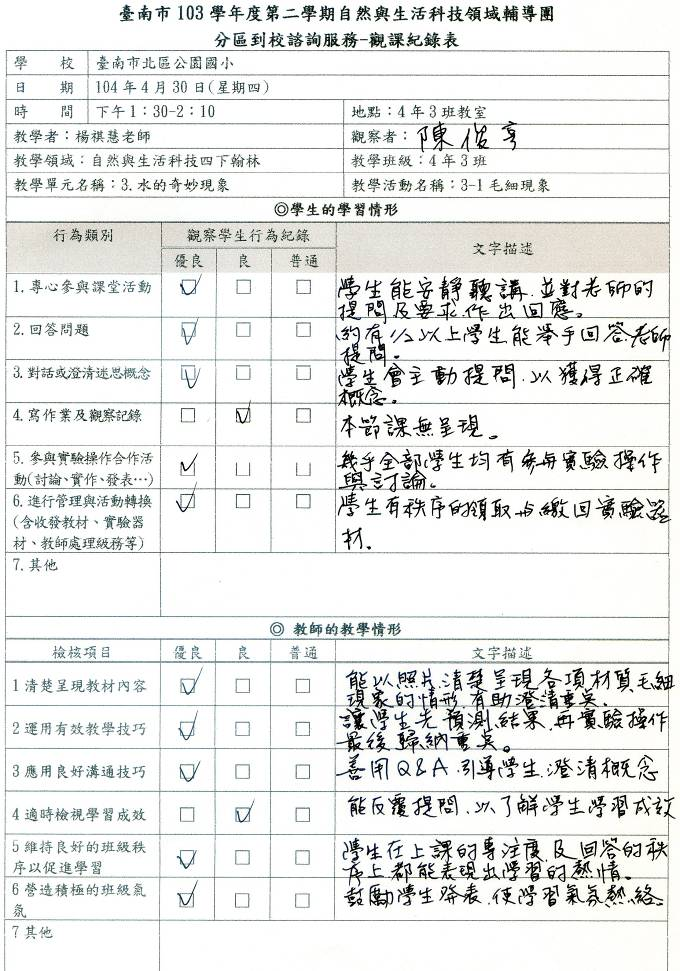 臺南市 103 學年度第二學期自然與生活科技領域輔導團
分區到校諮詢服務-觀課紀錄表
學 校 臺南市北區公園國小
日 期 104 年 4 月 30 日(星期四)
時 間 下午 1:30-2:10 地點:4 年 3 班教室
教學者:楊祺慧老師 觀察者:陳俊亨
教學領域:自然與生活科技四下翰林 教學班級:4 年 3 班
教學單元名稱:3.水的奇妙現象 教學活動名稱:3-1 毛細現象
◎學生的學習情形
行為類別 觀察學生行為紀錄 文字描述
優良 良 普通
1.專心參與課堂活動 ☑ □ □ 學生能安靜聽講,並對老師的
提問及要求,作出回應。
2.回答問題 ☑ □ □ 約有1/2以上學生能舉手回答老師
提問。
3.對話或澄清迷思概念 ☑ □ □ 學生會主動提問,以獲得正確
概念。
4.寫作業及觀察記錄 □ ☑ □ 本節課無呈現。
5.參與實驗操作合作活 ☑ □ □ 幾乎全部學生均有參與實驗操作
動(討論、實作、發表…) 與討論。
6.進行管理與活動轉換 ☑ □ □ 學生有秩序的領取與繳回實驗器
(含收發教材、實驗器
材、教師處理級務等) 材.
7.其他
◎ 教師的教學情形
檢核項目 優良 良 普通 文字描述
1 清楚呈現教材內容 ☑ □ □ 能以照片清楚呈現各項材質毛細
現象的情形,有助澄清重點.
2 運用有效教學技巧 ☑ □ □ 讓學生先預測結果,再實驗操作
最後歸納重點。
3 應用良好溝通技巧 ☑ □ □ 善用Q&A,引導學生澄清概念
4 適時檢視學習成效 □ ☑ □ 能反覆提問,以了解學生學習成效
5 維持良好的班級秩 ☑ □ □ 學生在上課的專注度及回答的秩
序以促進學習 序上都能表現出學習的熱情。
6 營造積極的班級氣 ☑ □ □ 鼓勵學生發表,使學習氣氛熱絡。
氛
7 其他